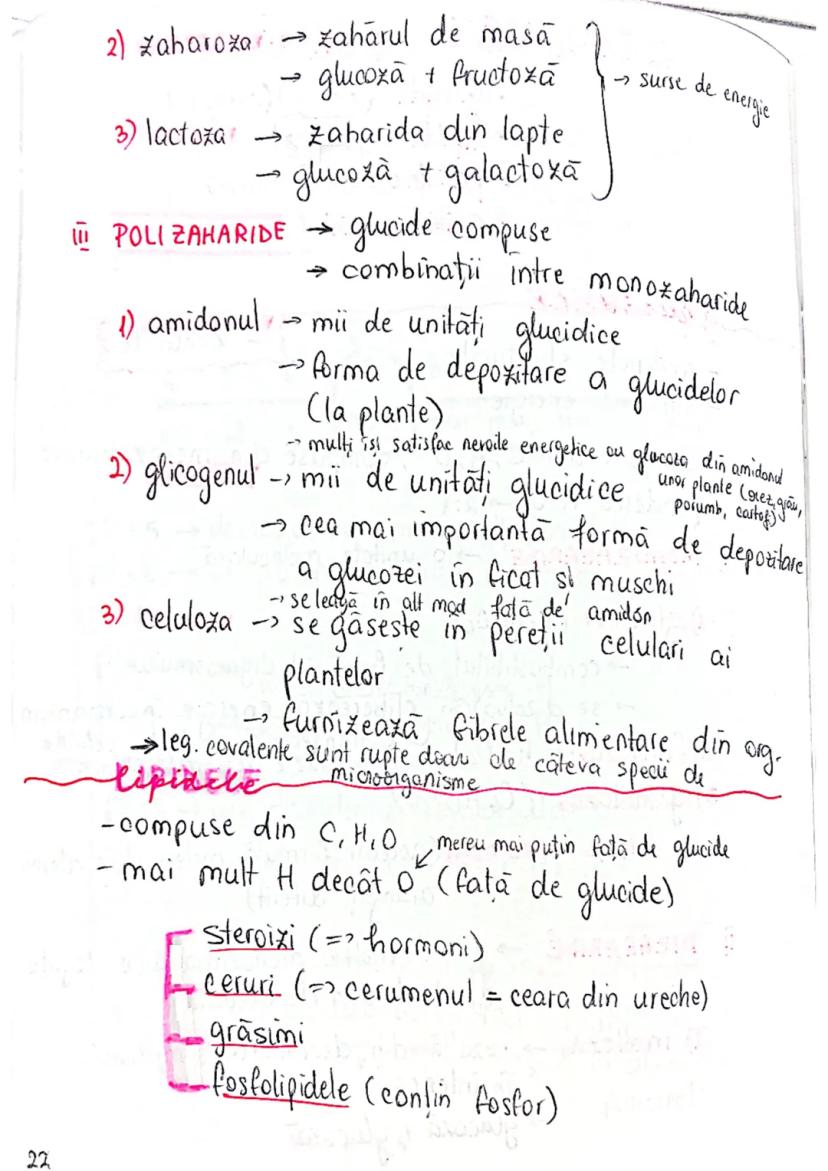 2) zaharoza → zahărul de masă
→ glucoză + fructoză
→ surse de energie
3) lactoza → zaharida din lapte
→ glucoză + galactoză
III POLIZAHARIDE → glucide compuse
→ combinații între monozaharide
1) amidonul → mii de unități glucidice
→ forma de depozitare a glucidelor
(la plante)
→ mulți își satisfac nevoile energetice cu glucoza din amidonul
unor plante (orez, grâu,
porumb, cartof)
2) glicogenul → mii de unități glucidice
→ cea mai importantă formă de depozitare
a glucozei în ficat și mușchi
→ se leagă în alt mod față de amidon
3) celuloza → se găsește în pereții celulari ai
plantelor
→ furnizează fibrele alimentare din org.
→ leg. covalente sunt rupte doar de câteva specii de
microorganisme
Lipidele
- compuse din C, H, O
mereu mai puțin față de glucide
- mai mult H decât O (față de glucide)
steroizi (=> hormoni)
ceruri (=> cerumenul = ceara din ureche)
grăsimi
fosfolipidele (conțin fosfor)
22